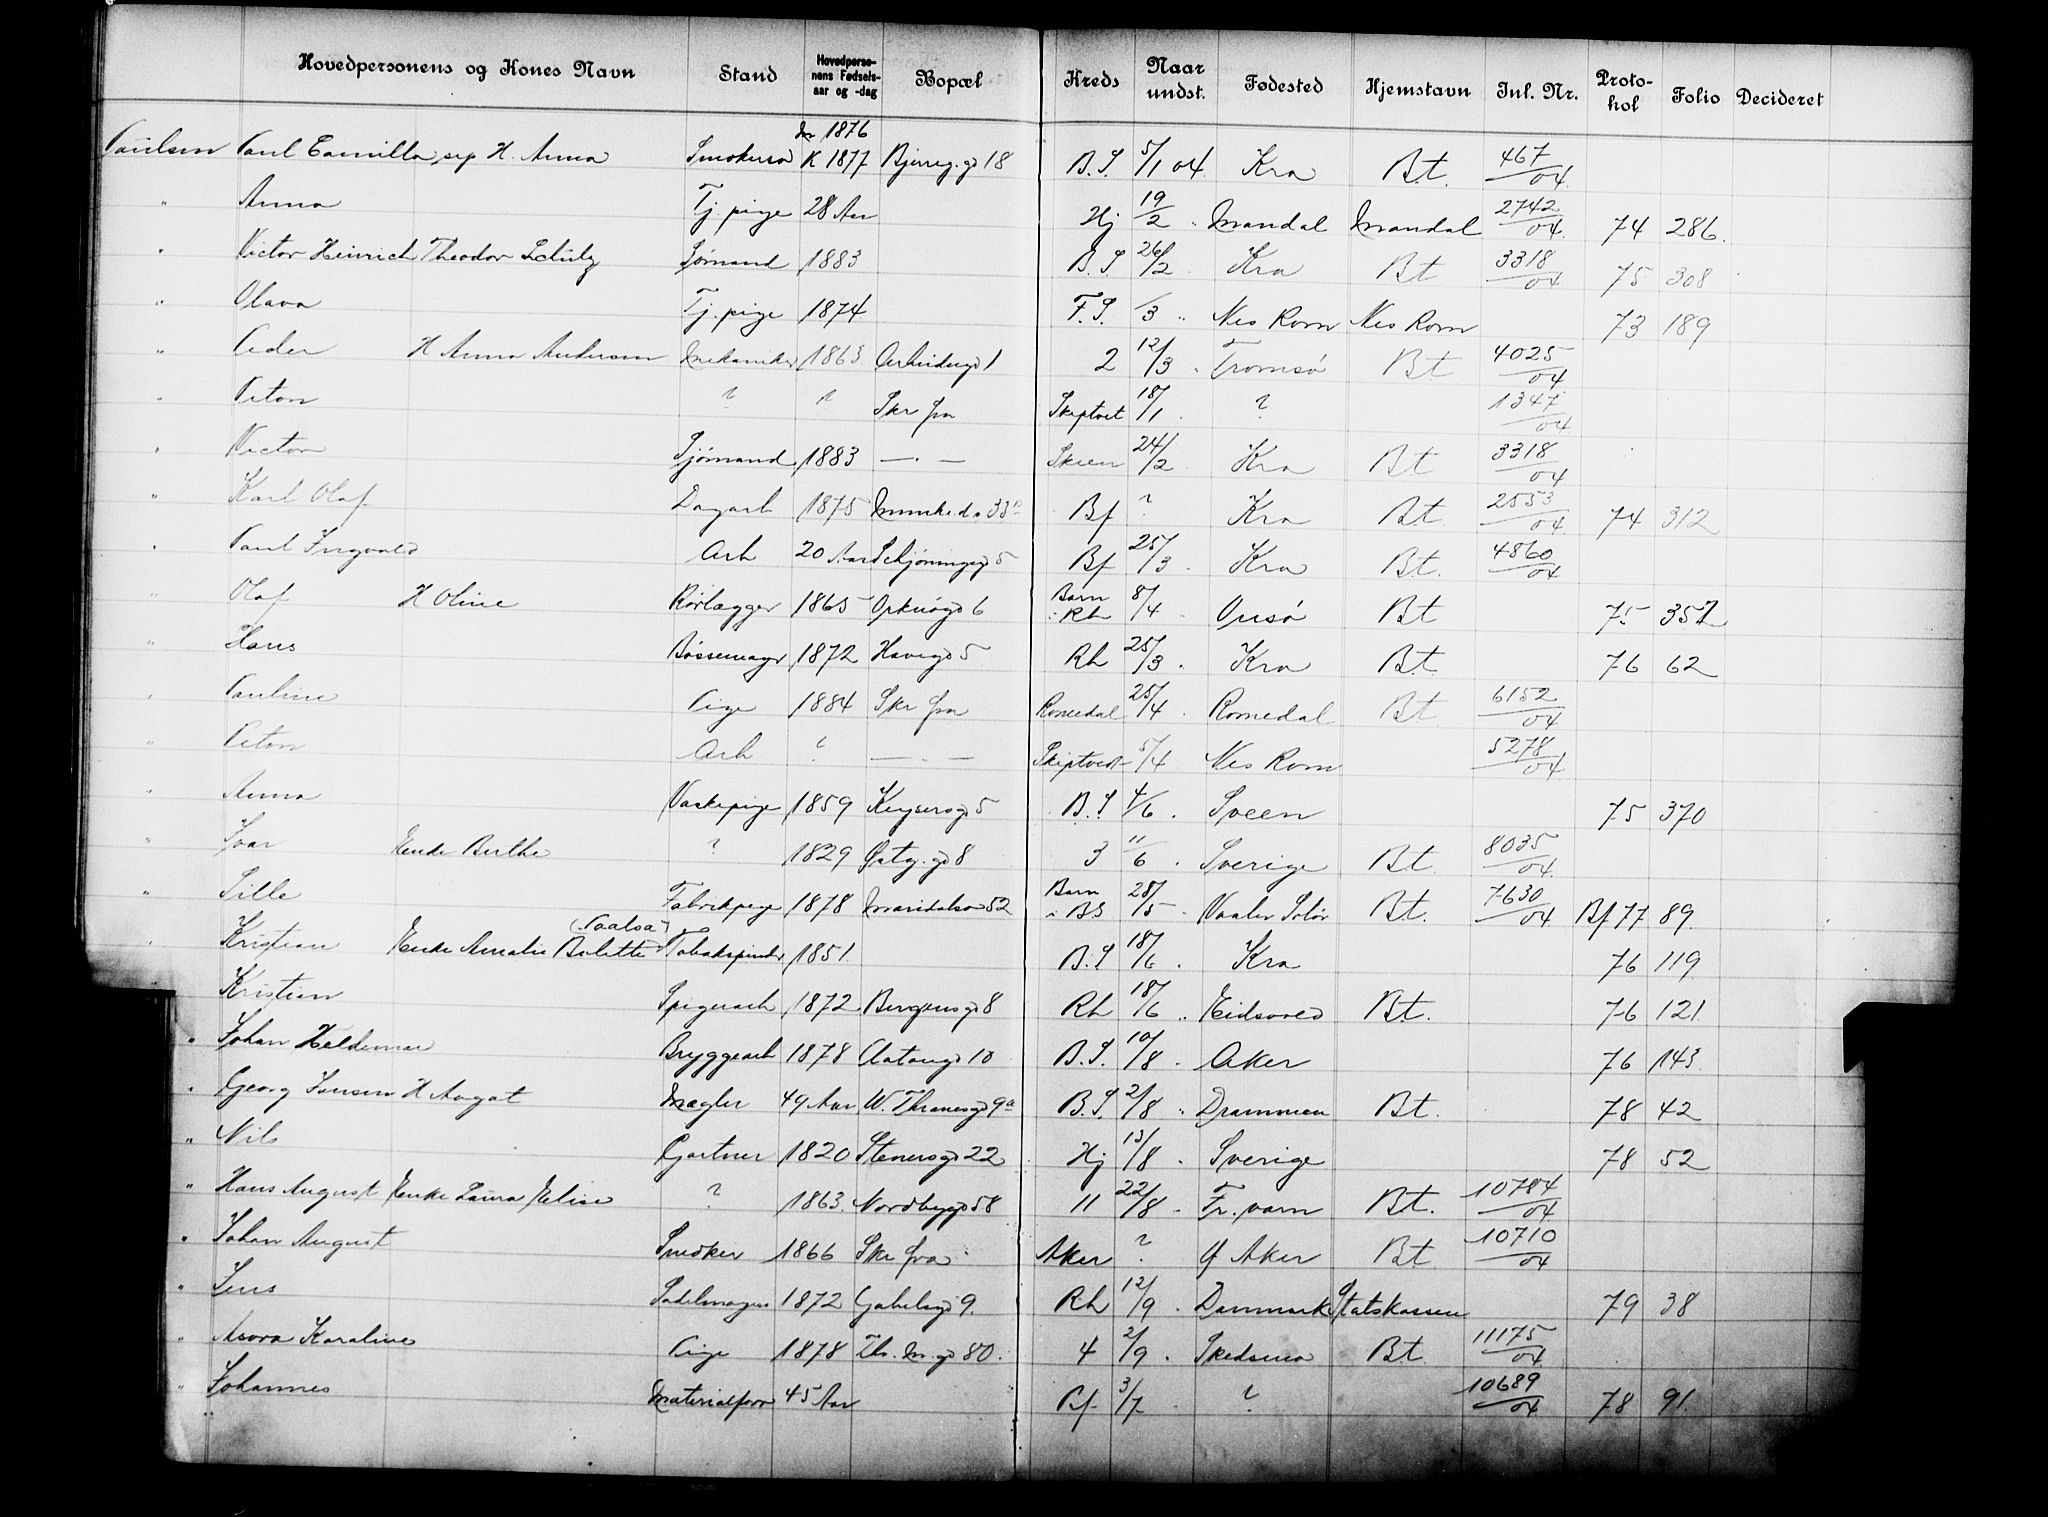 Hovedpersonens og Kones Navn Stand Hovedpersonens Fødselsaar og -dag Bopæl Kreds Naar undst. Fødested Hjemstavn Inl. Nr. Protokol Folio Decideret
M 1876
Paulsen Paul Camilla sep H. Anna K 1877 Bjerreg.gd 18 B.S. 5/1 04 Kra Bt. 467/04
" Anna Tj. pige 28 Aar Hj 19/2 " Mandal Mandal 2742/04 74 286.
" Victor Heinrich Theodor Schulz Sjømand 1883 B.S. 26/2 Kra Bt 3318/04 75 308
" Olava Tj. pige 1874 F.S. /3 " Nes Rom Nes Rom 73 189
" Peder H Anna Andersen Mekaniker 1863 Arbeidergd 1 2 12/3 " Tromsø Bt 4025/04
" Peton ? ? Skr fra Skiptvet 18/1 ? 1347/04
" Victor Sjømand 1883 — . — Skien 24/2 Kra Bt 3318/04
" Karl Olaf Dagarb 1875 33 Bf ? Kra Bt. 2553/04 74 312
" Paul Ingvald Arb 20 Aar Schjøningsgd 5 Bf 25/3 Kra Bt. 4860/04
" Olaf H Oline Rørlægger 1865 6 Barn i Rh 8/4 Onsø Bt 75 357
" Hans Bøssemager 1872 Havegd 5 Rh 25/3 . Kra Bt. 76 62
" Pauline Pige 1884 Skr fra Romedal 25/4 . Romedal Bt 6152/04
" Peton Arb ? — . — Skiptvedt 5/4 Nes Rom 5278/04
" Anna Vaskepige 1859 Keysersgd 5 B.S 4/6 . Sveen 75 370
" Ivar Enke Berthe ? 1829 Østg.gd 8 3 11/6 . Sverige Bt. 8035/04
" Sille Fabrikpige 1878 Maridalsv 52 Barn i BS 28/5 Vaaler Solør Bt. 7630/04 Bf 77 89.
" Kristian Enke Amalie Bolette (Paalsa) Tobakspinder 1851 B.S 18/6 . Kra 76 119
" Kristian Spigerarb 1872 Bergensgd 8 Rh 18/6 " Eidsvold Bt. 76 121
" Johan Heldemar Bryggearb 1878 10 B.S. 10/8 . Aker 76 143
" Georg Jensen H Aagot Mægler 49 Aar W. Thranesgd 9a B.S. 2/8 " Drammen Bt. 78 42
" Nils Gartner 1820 Stenersgd 22 Hj 13/8 . Sverige 78 52
" Hans August Enke Laura Elise ? 1863 Nordbygd 58 11 22/8 . Fr. varn Bt. 10784/04
" Johan August Snedker 1866 Skr fra Aker ? . Ø Aker Bt 10710/04
" Jens Sadelmager 1872 Gabelsgd 9. Rh 12/9 . Danmark Statskassen 79 38
" Asora Karoline Pige 1878 Th. M. gd 80. 4 2/9 . Skedsmo Bt. 11175/04
" Johannes Materialforv 45 Aar Bf 3/7 . ? 10689/04 78 91.